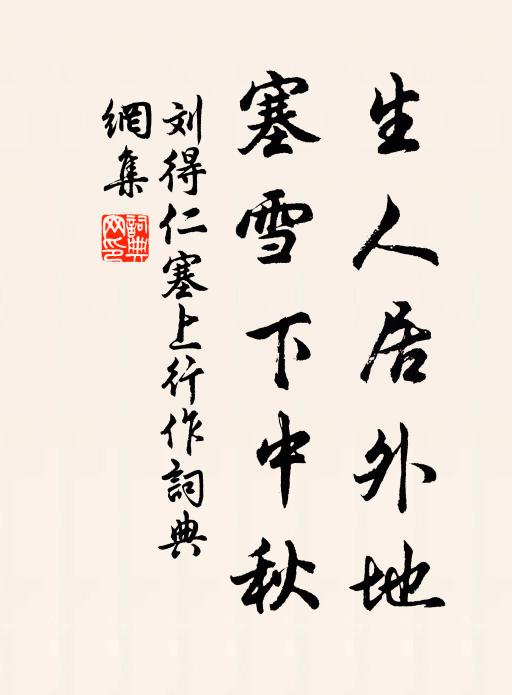 生人居外地
塞雪下中秋
刘得仁塞上行作詞典
網集
詞典
网印